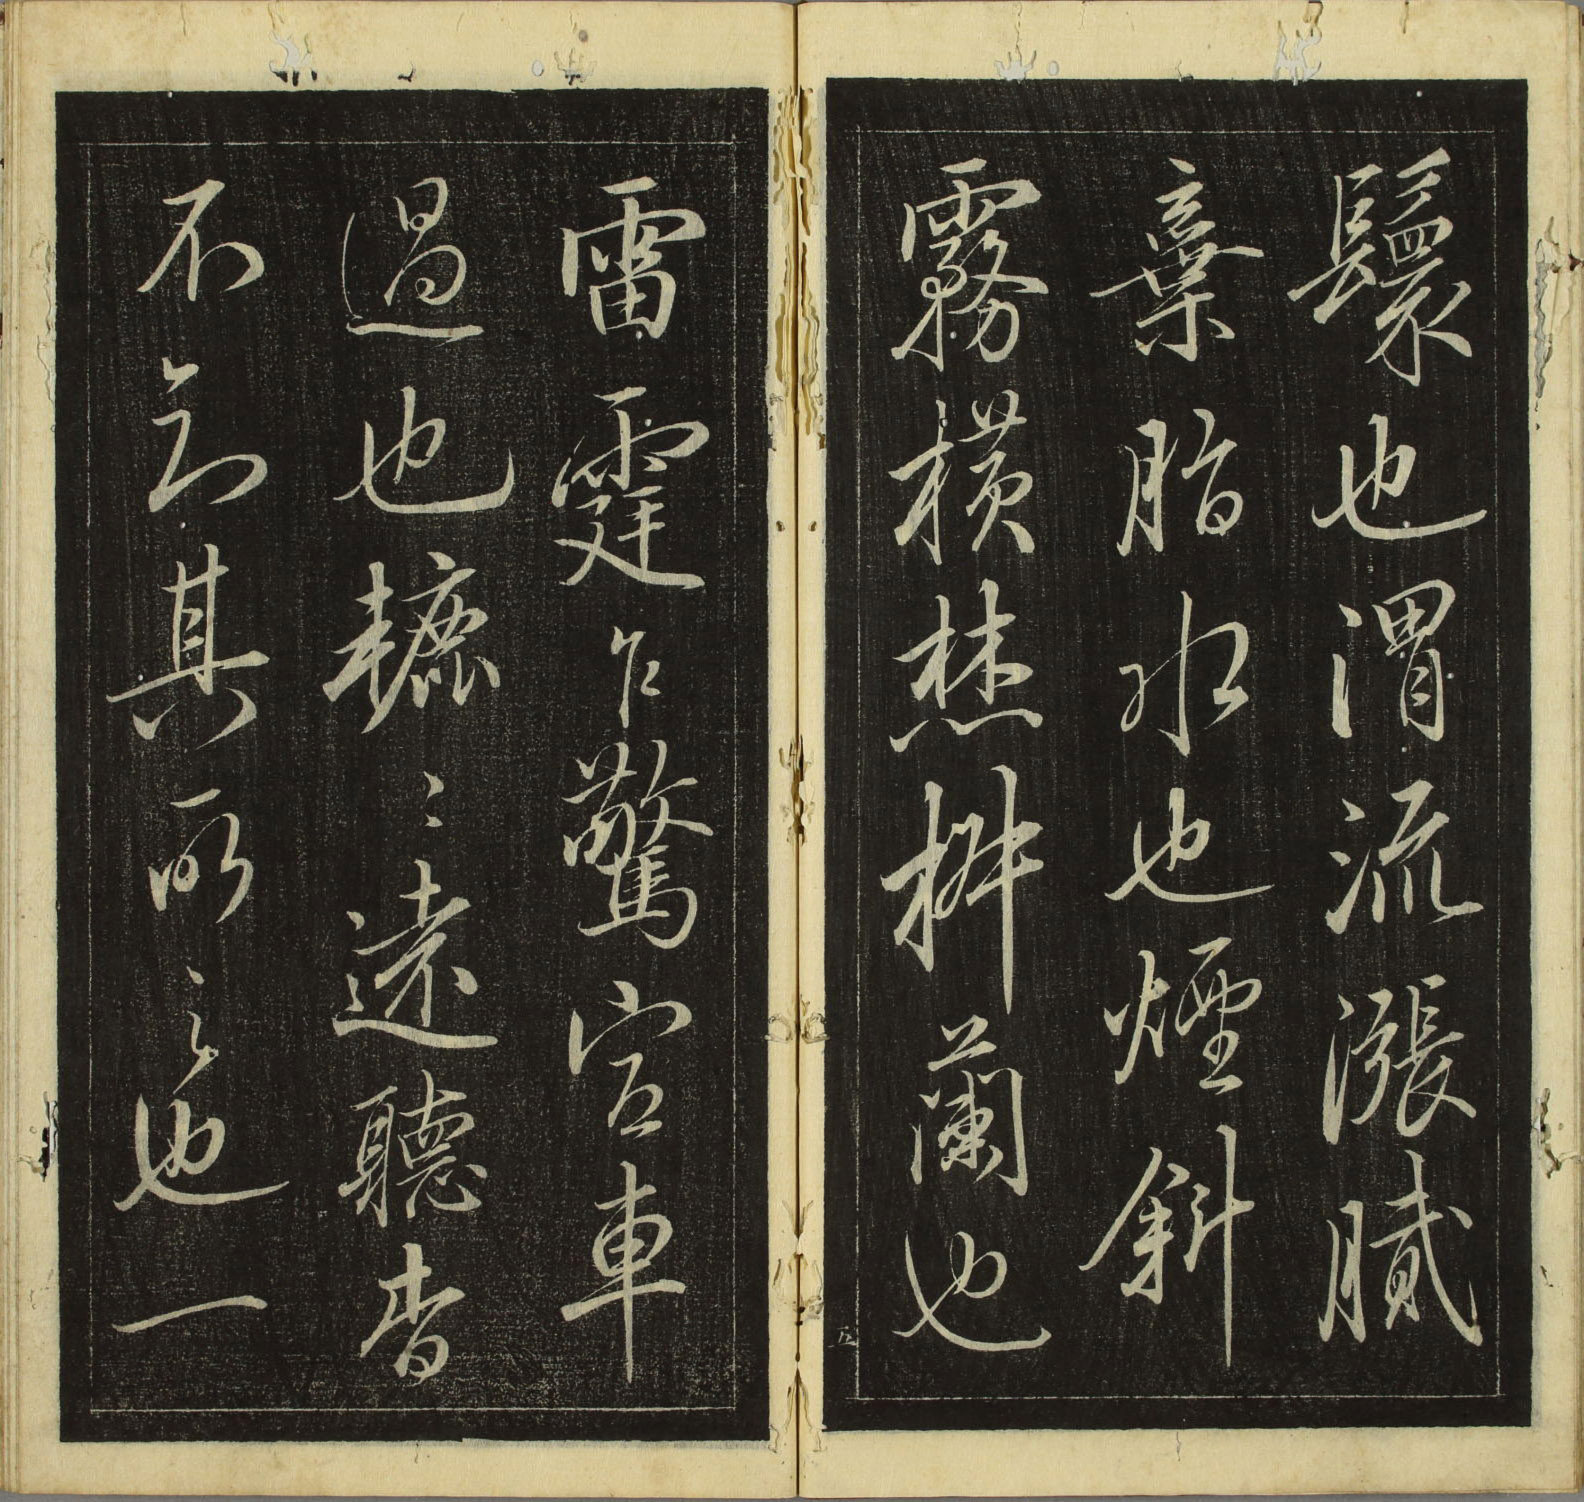 鬟也渭流漲膩
棄脂水也煙斜
霧橫焚椒蘭也
五
雷霆乍驚宮車
過也轆〻遠聽杳
不知其所之也一